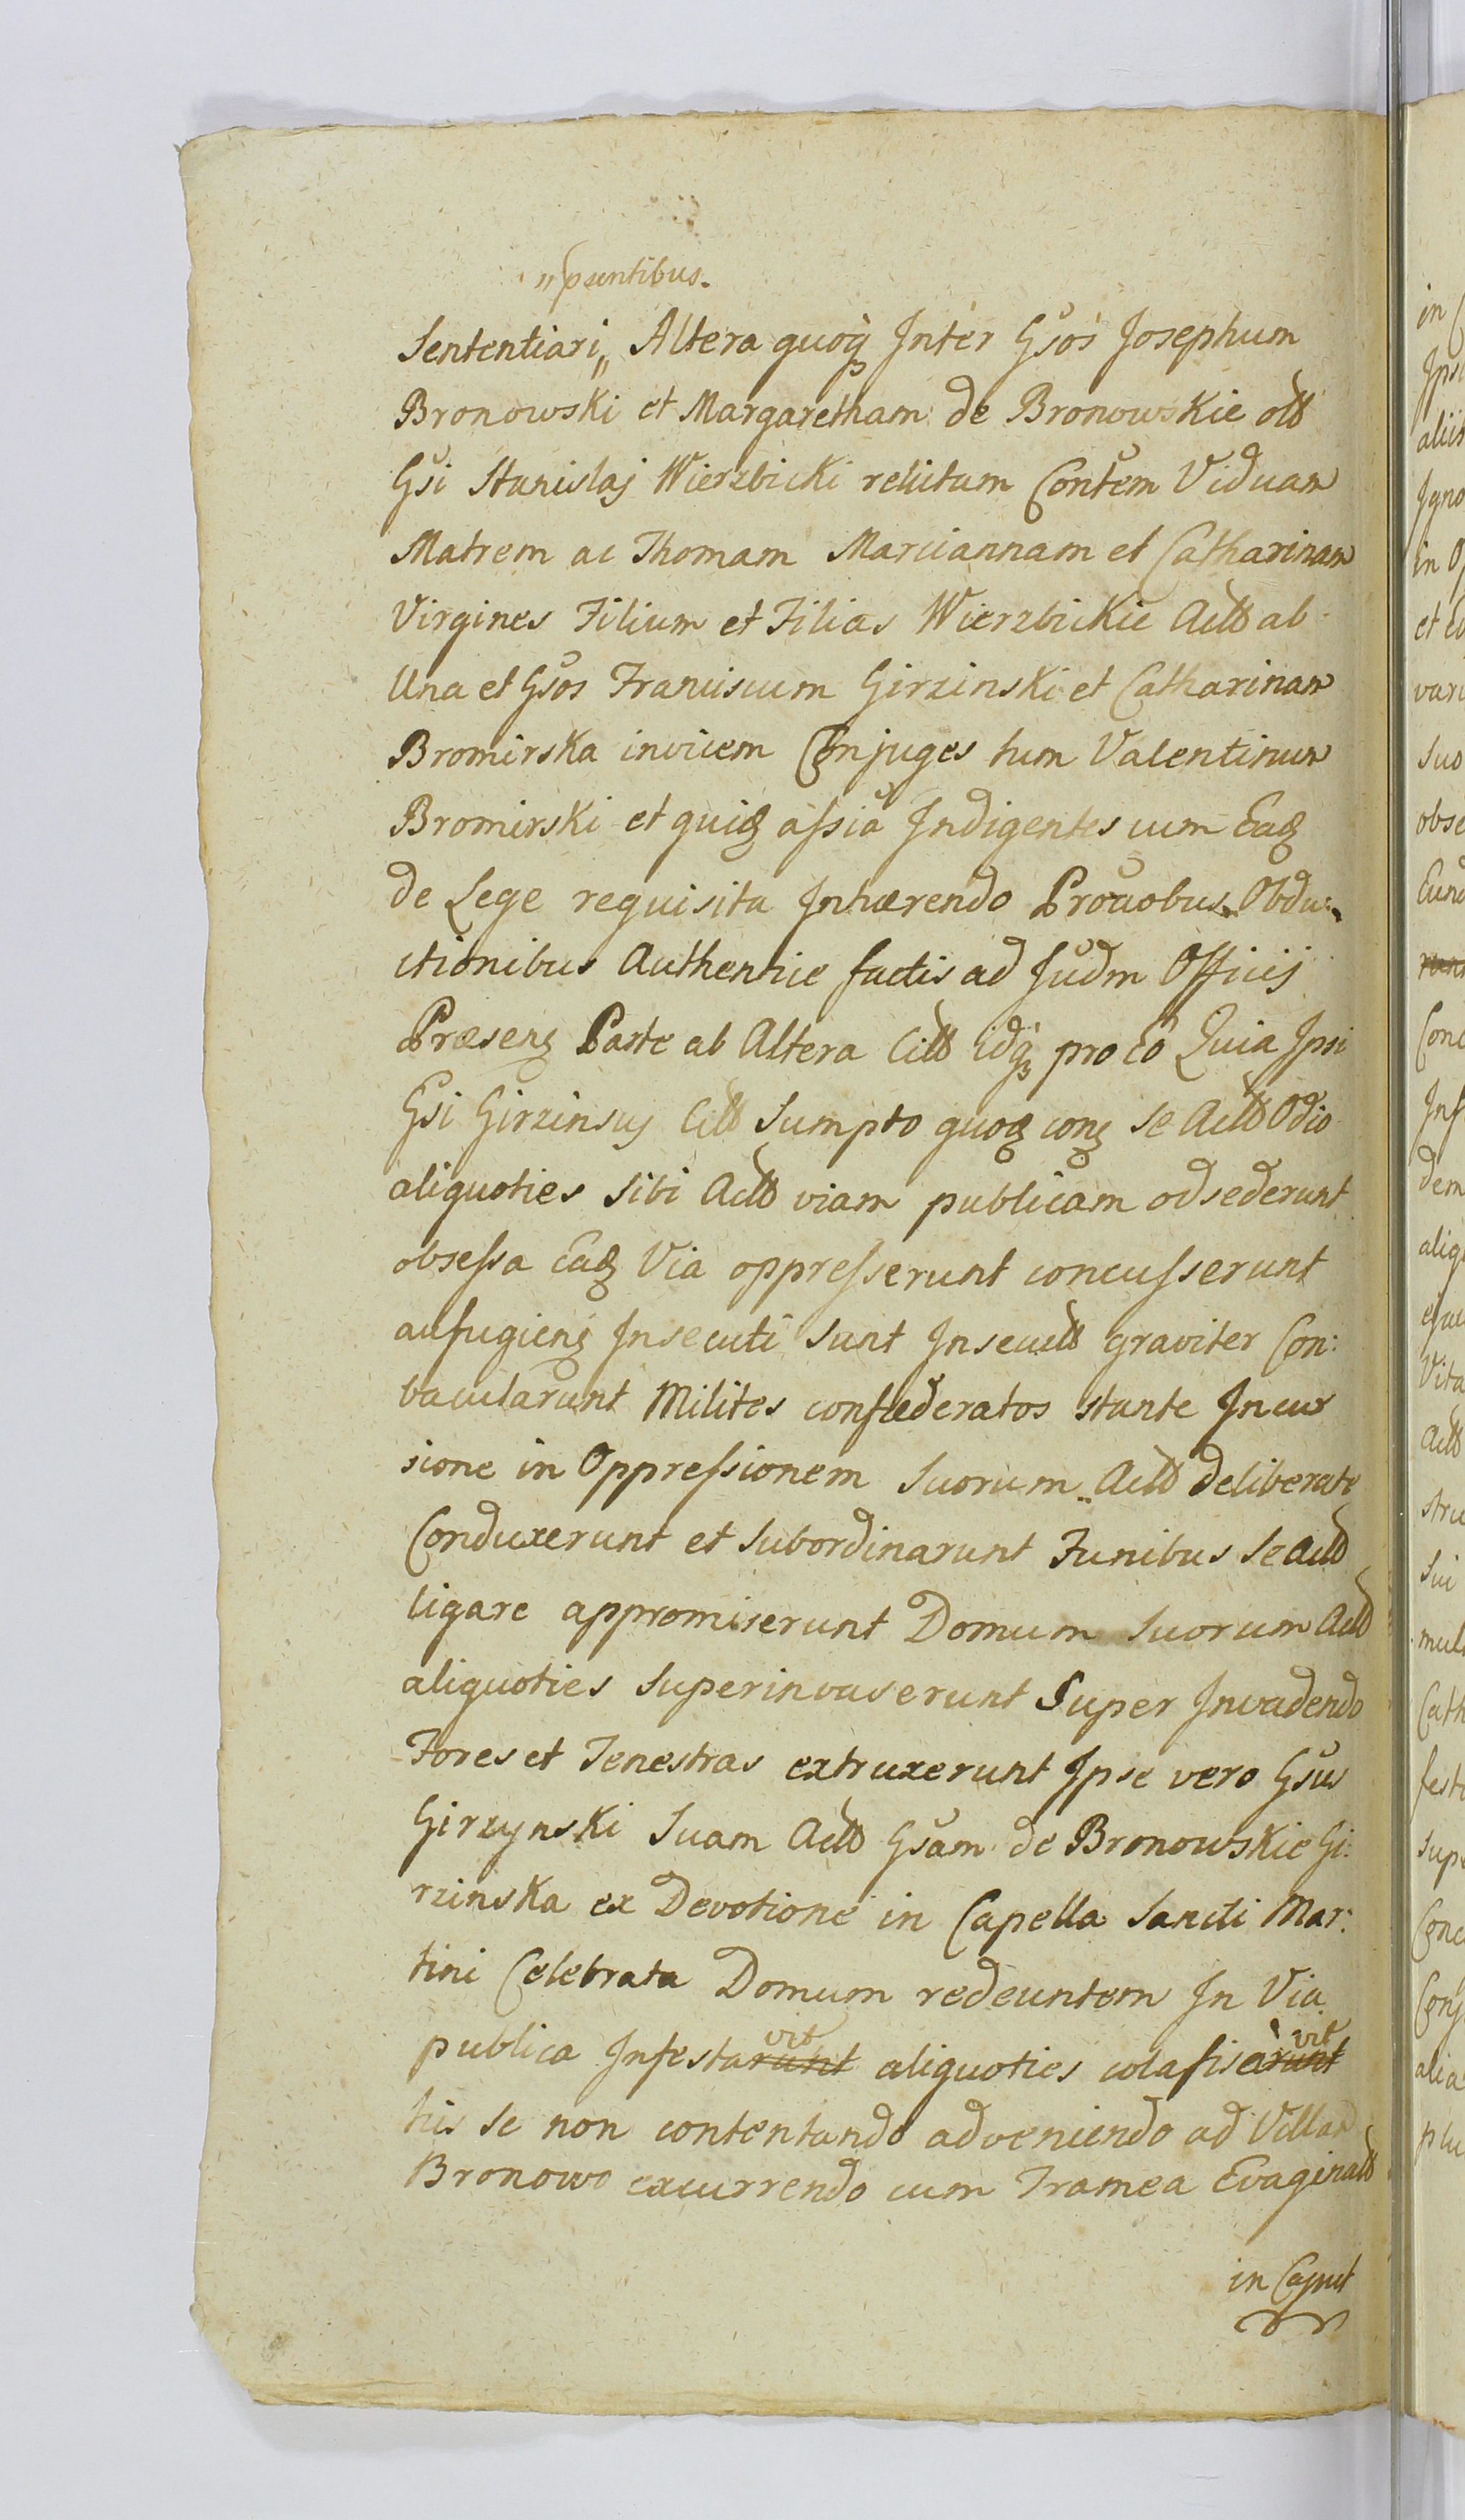 „ pẽntibus.
Sententiari „ Altera quoq̃ Inter Gsos Josephum
Bronowski et Margaretham de Bronowskie olt̃
Gsi Stanislaj Wierzbicki relictam Contem Viduam
Matrem ac Thomam Mariannam et Catharinam
Virgines Filium et Filias Wierzbickie Act̃ ab
Una et Gsos Franciscum Girzinski et Catharinam
Bromirska invicem Conjuges tum Valentinum
Bromirski et quiq assia Indigentes cum Eaq
de Lege requisita Inhærendo Provobus Obdu:
ctionibus Authentice factis ad Judm Officij
Præsenz Parte ab Altera Cit̃ Idq̃ pro Eo Quia Ipsi
Gsi Girzinscy Cit̃ Sumpto quoq conz se Act̃ Odio
aliquoties sibi Act̃ viam publicam odsederunt
obsessa Eaq Via oppresserunt concusserunt
aufugienz Insecuti sunt Insecut̃ graviter Con:
bacularunt Milites confæderatos stante Incur
sione in Oppressionem Suorum Act̃ deliberate
Conduxerunt et Subordinarunt Funibus se Act̃
ligare appromiserunt Domum Suorum Act̃
aliquoties Superinvaserunt Super Invadendo
Fores et Fenestras extruxerunt Ipse vero Gsus
Girzynski Suam Act̃ Gsam de Bronowskie Gi:
rzinska ex Devotione in Capella Sancti Mar:
tini Celebrata Domum redeuntem In Via
publica Infestarunt vit aliquoties colafisarunt vit
his se non contentando adveniendo ad Villam
Bronowo excurrendo cum Framea Evaginat̃
in Caput